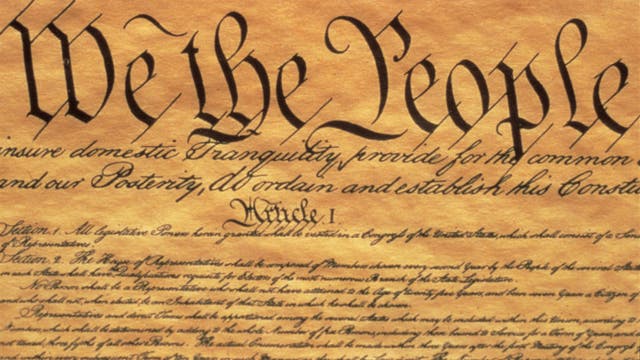 We the People
insure domestic Tranquility, provide for the common
and our Posterity, do ordain and establish this Consti
Article. I.
Section. 1. All legislative Powers herein granted shall be vested in a Congress of the United States, which shall consist of a Sena
of Representatives.
Section. 2. The House of Representatives shall be composed of Members chosen every second Year by the People of the several States
in each State shall have Qualifications requisite for Electors of the most numerous Branch of the State Legislature.
No Person shall be a Representative who shall not have attained to the Age of twenty five Years, and been seven Years a Citizen of
and who shall not, when elected, be an Inhabitant of that State in which he shall be chosen.
Representatives and direct Taxes shall be apportioned among the several States which may be included within this Union, according to
Numbers, which shall be determined by adding to the whole Number of free Persons, including those bound to Service for a Term of Years, and
not taxed, three fifths of all other Persons. The actual Enumeration shall be made within three Years after the first Meeting of the Congress